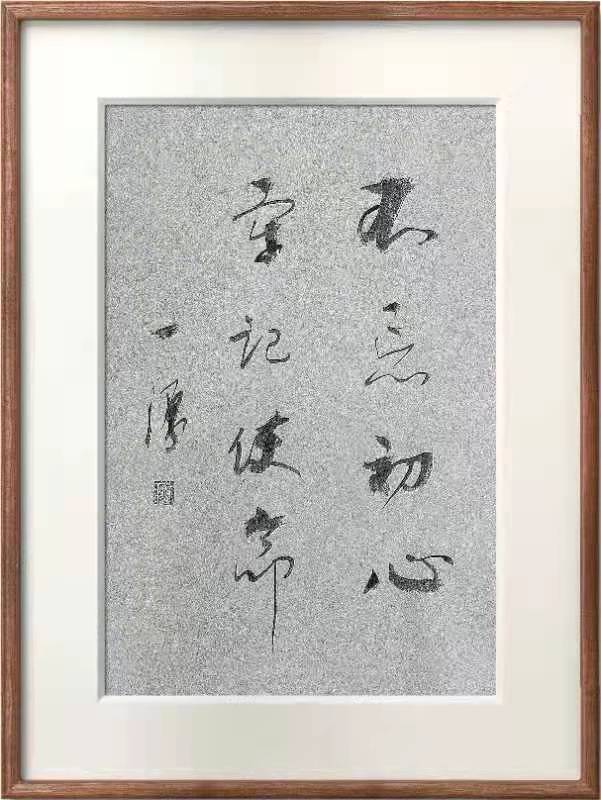 不忘初心
牢记使命
一